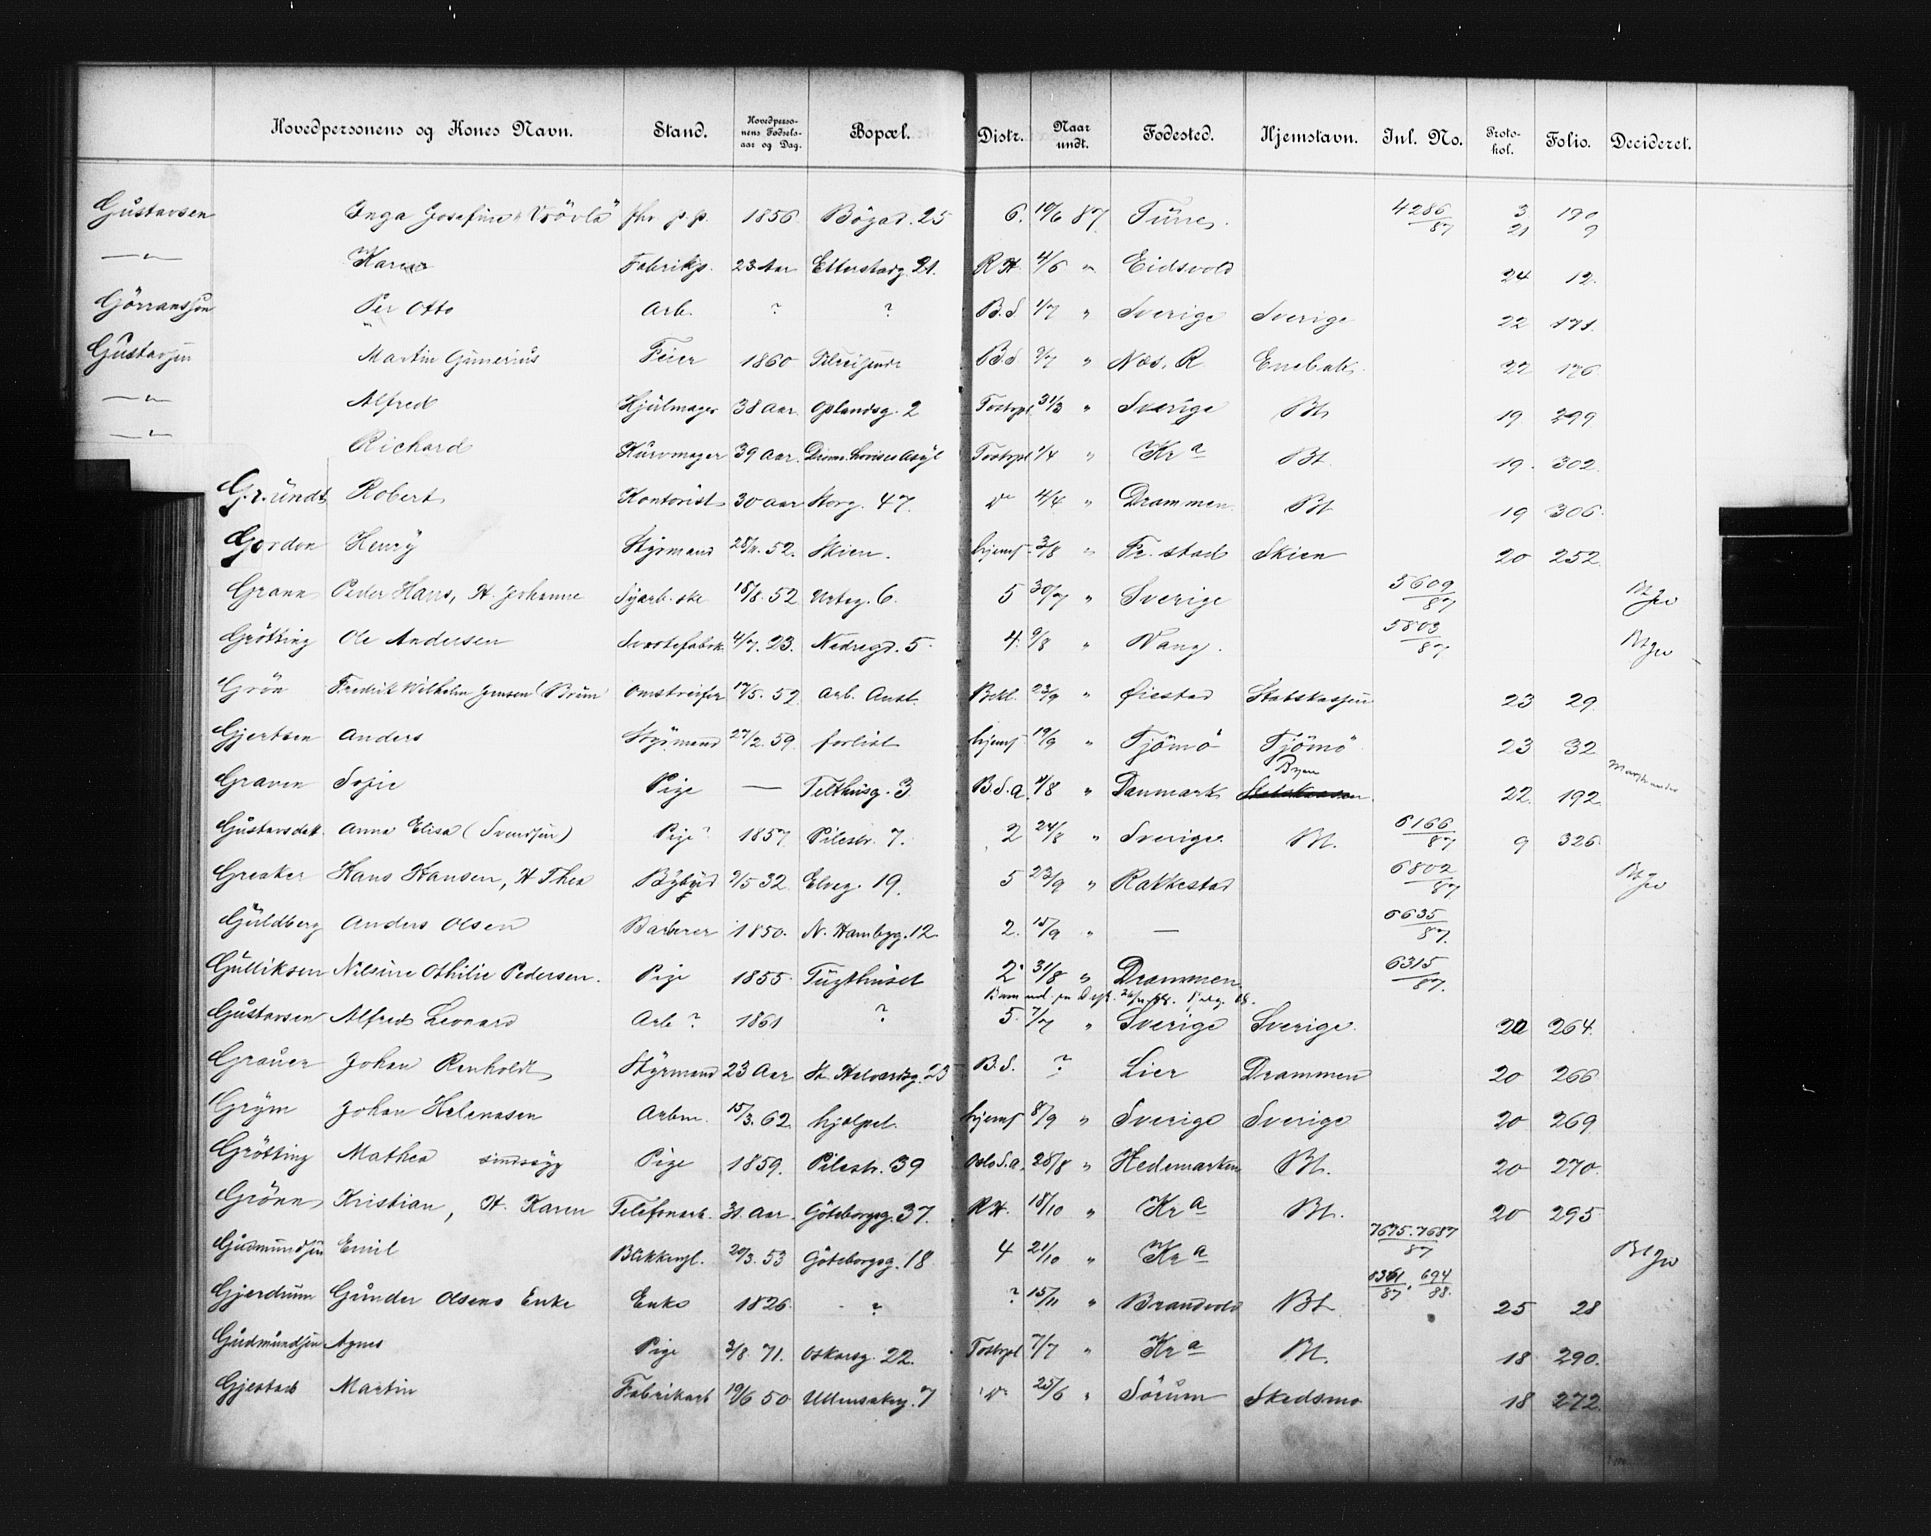 Hovedpersonens og Kones Navn. Stand. Hovedperso-nens Fødsels-aar og Dag. Bopæl. Distr. Naar undt. Fødested. Hjemstavn. Inl. No. Proto-kol. Folio. Decideret.
Gustavsen Inga Josefine 1856 Bøgad. 25 6. 10/6 87 4286/87 3 190
21 9
—"— Karen Fabrikp. 23 Aar Etterstadg. 21. R.H. 4/6 " Eidsvold 24 12.
Görransson Per Otto Arb. ? ? B.S 1/7 " Sverige Sverige 22 171.
Gustavsen Martin Gunerius Feier 1860 Tilreisende " Næs, R. Enebak 22 176
—"— Alfred Hjulmager 38 Aar Oplandsg. 2 Tostrpl. 31/3 " Sverige Bt. 19 299
—"— Richard Kurvmager 39 Aar. Tostrpl. 1/4 " Kra Bt. 19. 302.
Grundt Robert Kontorist 30 Aar Storg. 47. do 4/4 " Drammen Bt. 19 306.
Gordon Henry Styrmand 52. Skien. hjems. 3/8 " Fr.stad Skien 20 252.
Grann Peder Hans, H. Johanne 18/8. 52 Urteg. 6. 5 30/7 " Sverige 5609/87
Grötting Ole Andersen 4/7. 23. Nedregd. 5. 4. 9/8 " Vang. 5803/87
Grön Fredrik Wilhelm Jensen (Brun) Omstreifer 17/5. 52 Arb. Anst. 23/9 " Øiestad Statskassen 23 29.
Gjertsen Anders Styrmand 27/2. 59. forlist hjems. 19/9 " Tjömö Tjömö 23 32
Graven Sofie Pige — Telthusg. 3 B.S.a. 4/8 " Danmark Byen Statskassen 22. 192
Gustavsdatt. Anna Elisa (Svendsen) Pige? 1857. Pilestr. 7. 2 24/8 " Sverige. Bt. 6166/87 9 326
Greaker Hans Hansen, H. Thea 2/5 32 Elveg. 19. 5 23/9 " Rakkestad 6802/87
Guldberg Anders Olsen Barberer 1850. N. Hambrg. 12 2. 15/9 " — 6635/87.
Gulliksen Nilsine Othilie Pedersen. Pige 1855. Tugthuset 2 31/8 " Drammen 6315/87.
Gustavsen Alfred Leonard Arb? 1861 ? 5. 7/7 " Sverige Sverige. 20 264.
Grauer Johan Renholdt Styrmand 23 Aar St. Halvardsg. 23 B.S. ? Lier Drammen 20 266
Grym Johan Helenasen Arbm. 15/3. 62. hjelpel. hjems 8/9 " Sverige Sverige 20 269.
Grötting Mathea sindssyg Pige 1859. Pilestr. 39 Oslo S.a. 25/8 " Hedemarken Bt. 20 270.
Grönn Kristian, H. Karen Telefonarb. 31 Aar. Göteborgsg. 37. R.H. 18/10 " Kra Bt. 20 295
Gudmundsen Emil Blikkensl. 20/3. 53 Göteborgsg. 18 4 21/10 " Kra 7675.7687/87
Gjerdrum Gunder Olsens Enke Enke 1826. ? ? 15/11 " Brandvold Bt. 8361/87. 694/88. 25 28
Gudmundsen Agnes Pige 3/8. 71. Oskarsg. 22. Tostrpl 7/7 " Kra Bt. 18 290.
Gjestad Martin Fabrikarb 19/6 50 Ullensakerg. 7 do 25/6 " Sørum Skedsmo 18 272.